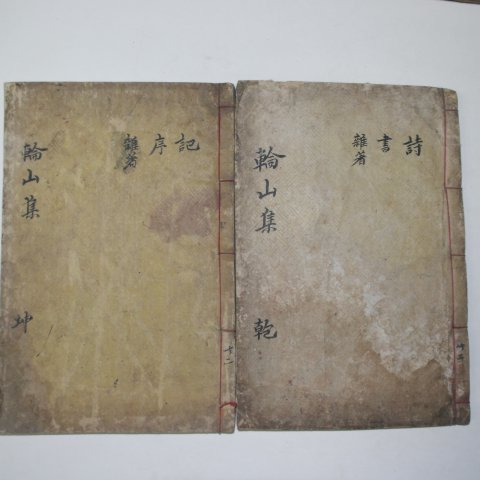 詩
書
雜著
輪山集
乾
記
序
雜著
輪山集
坤